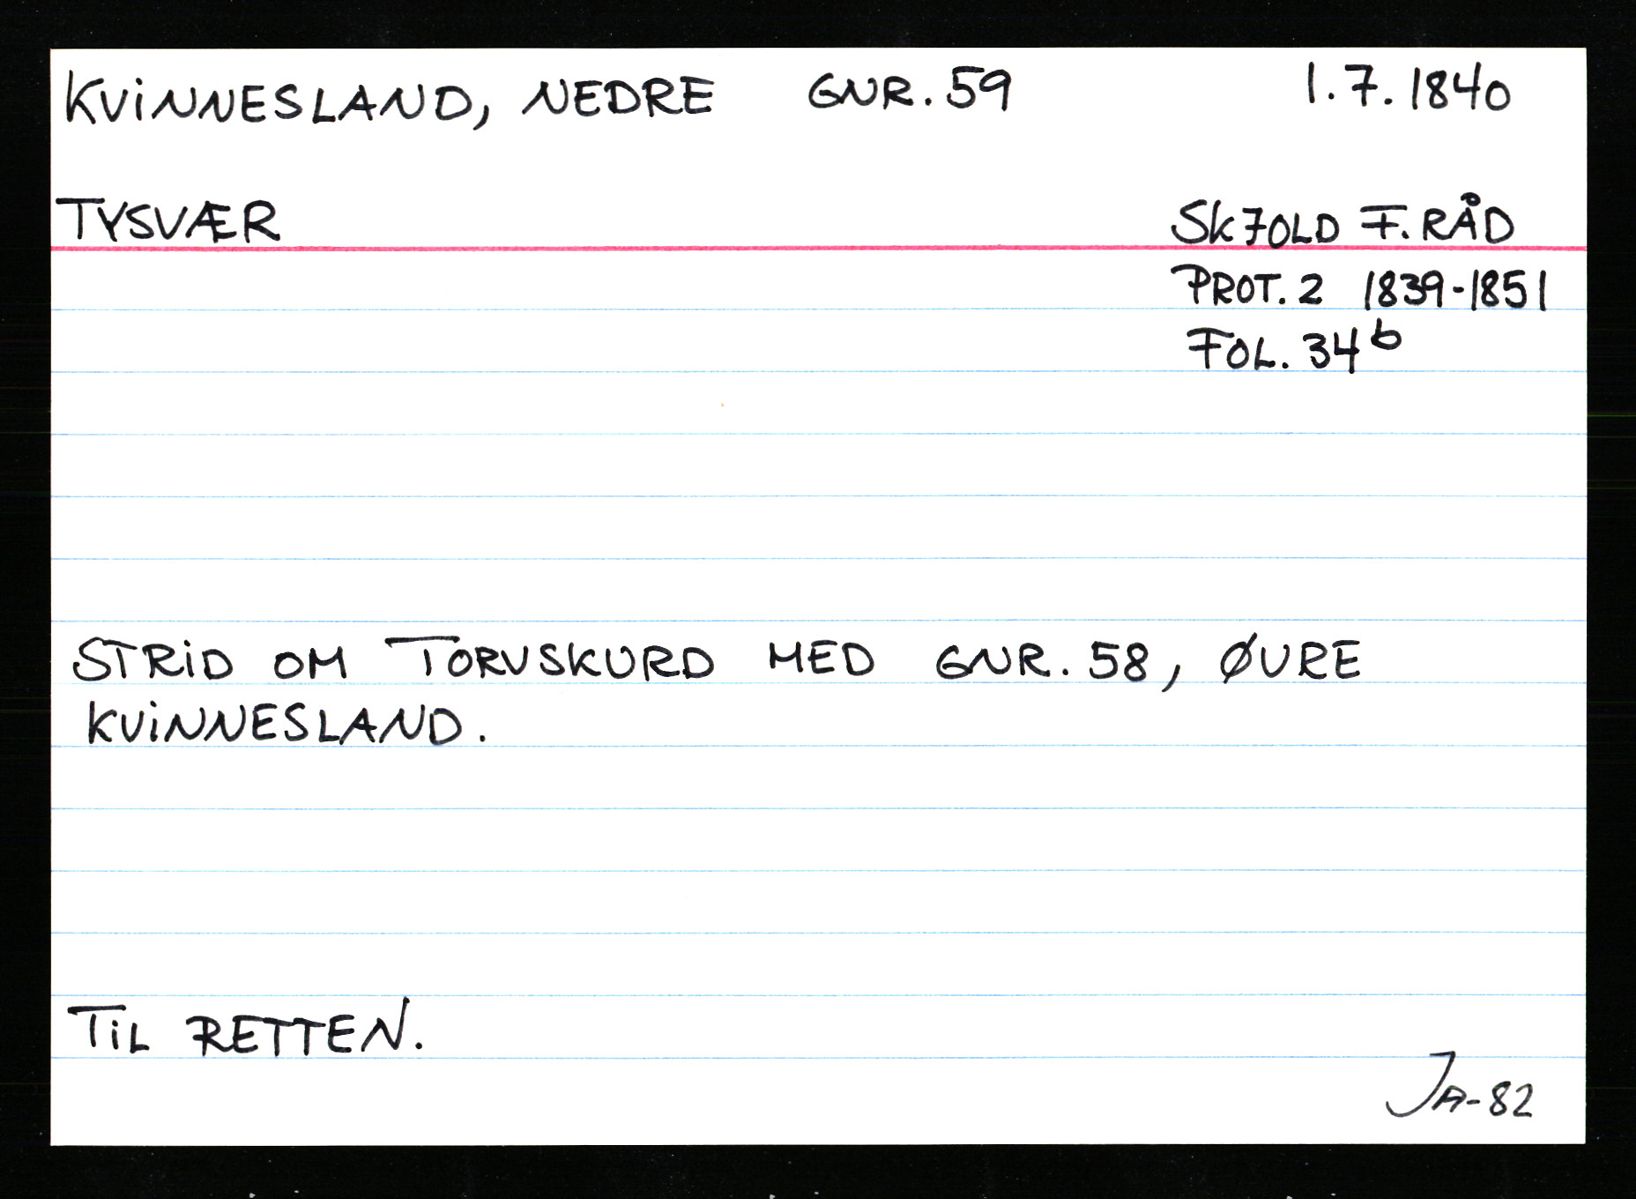 KVINNESLAND, NEDRE GNR. 59 1.7.1840
TYSVÆR SKJOLD F. RÅD
PROT. 2 1839-1851
FOL. 34b
STRID OM TORVSKURD MED GNR. 58, ØVRE
KVINNESLAND.
TIL RETTEN.
JA-82